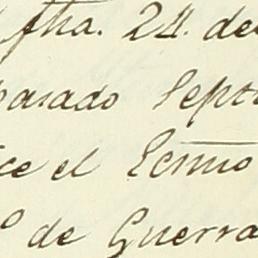 fha. 24. del
pasado Septi
ce el Ecmo
o de Guerra